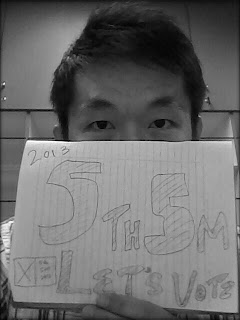 2013
5TH 5M
LET'S VOTE